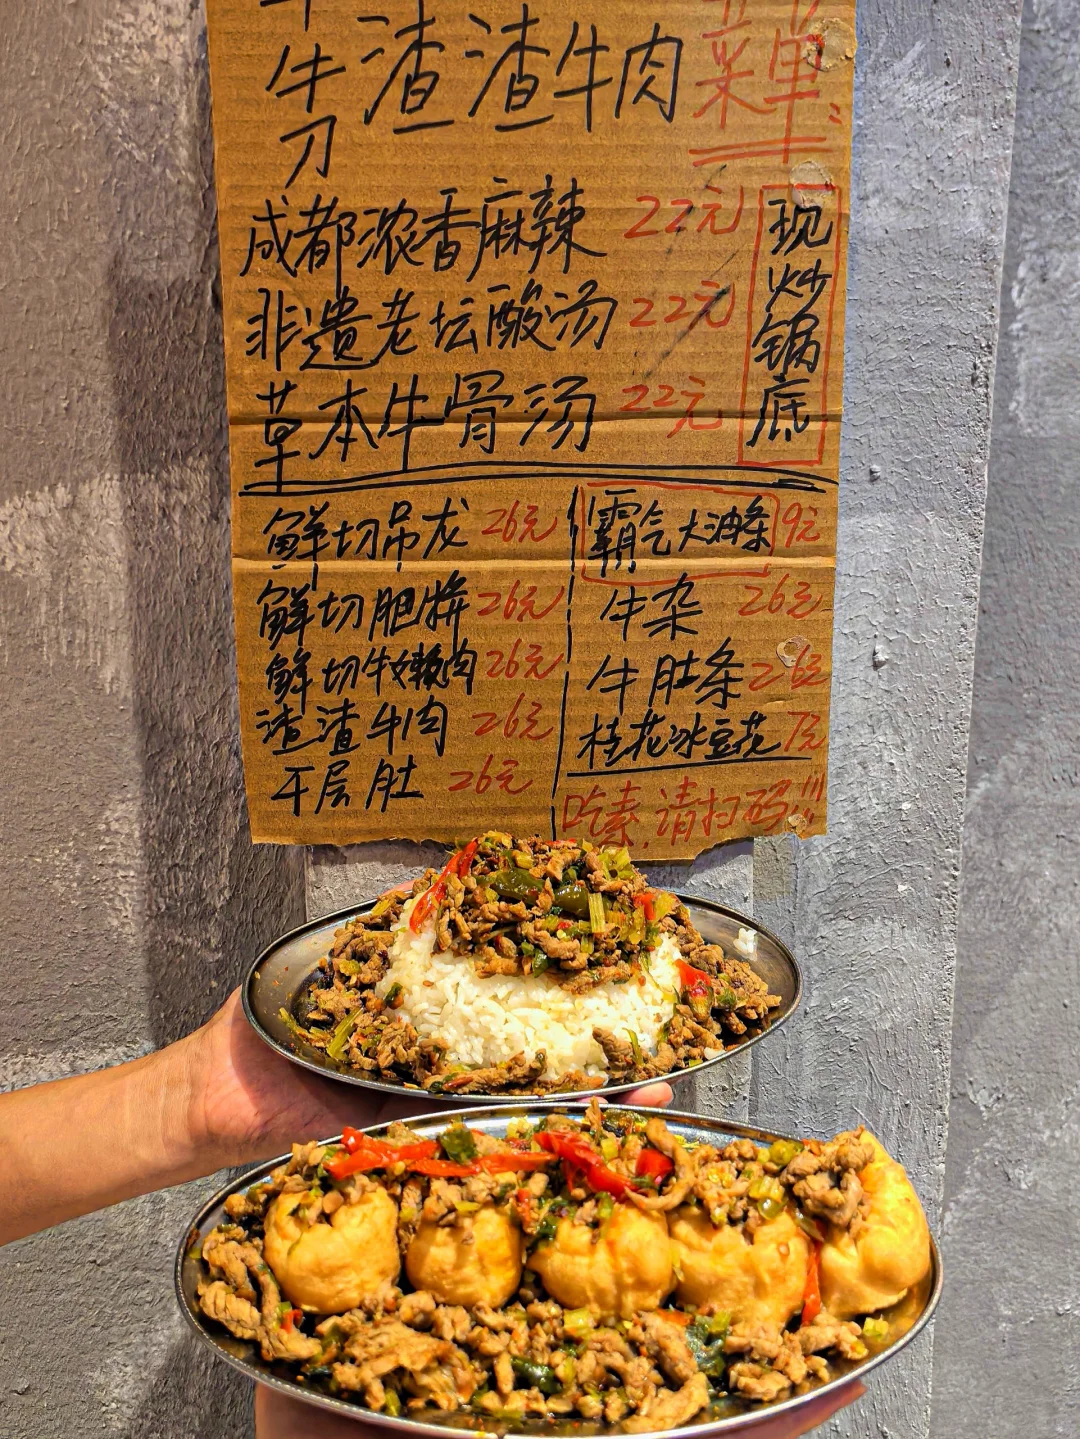 牛刀
渣渣牛肉
菜单:
成都浓香麻辣 22元
非遗老坛酸汤 22元
草本牛骨汤 22元
现炒锅底
鲜切吊龙 26元
鲜切肥胼 26元
鲜切牛嫩肉 26元
渣渣牛肉 26元
千层肚 26元
霸气大油条 9元
牛杂 26元
牛肚条 26元
桂花冰豆花 7元
吃素.请扫码!!!